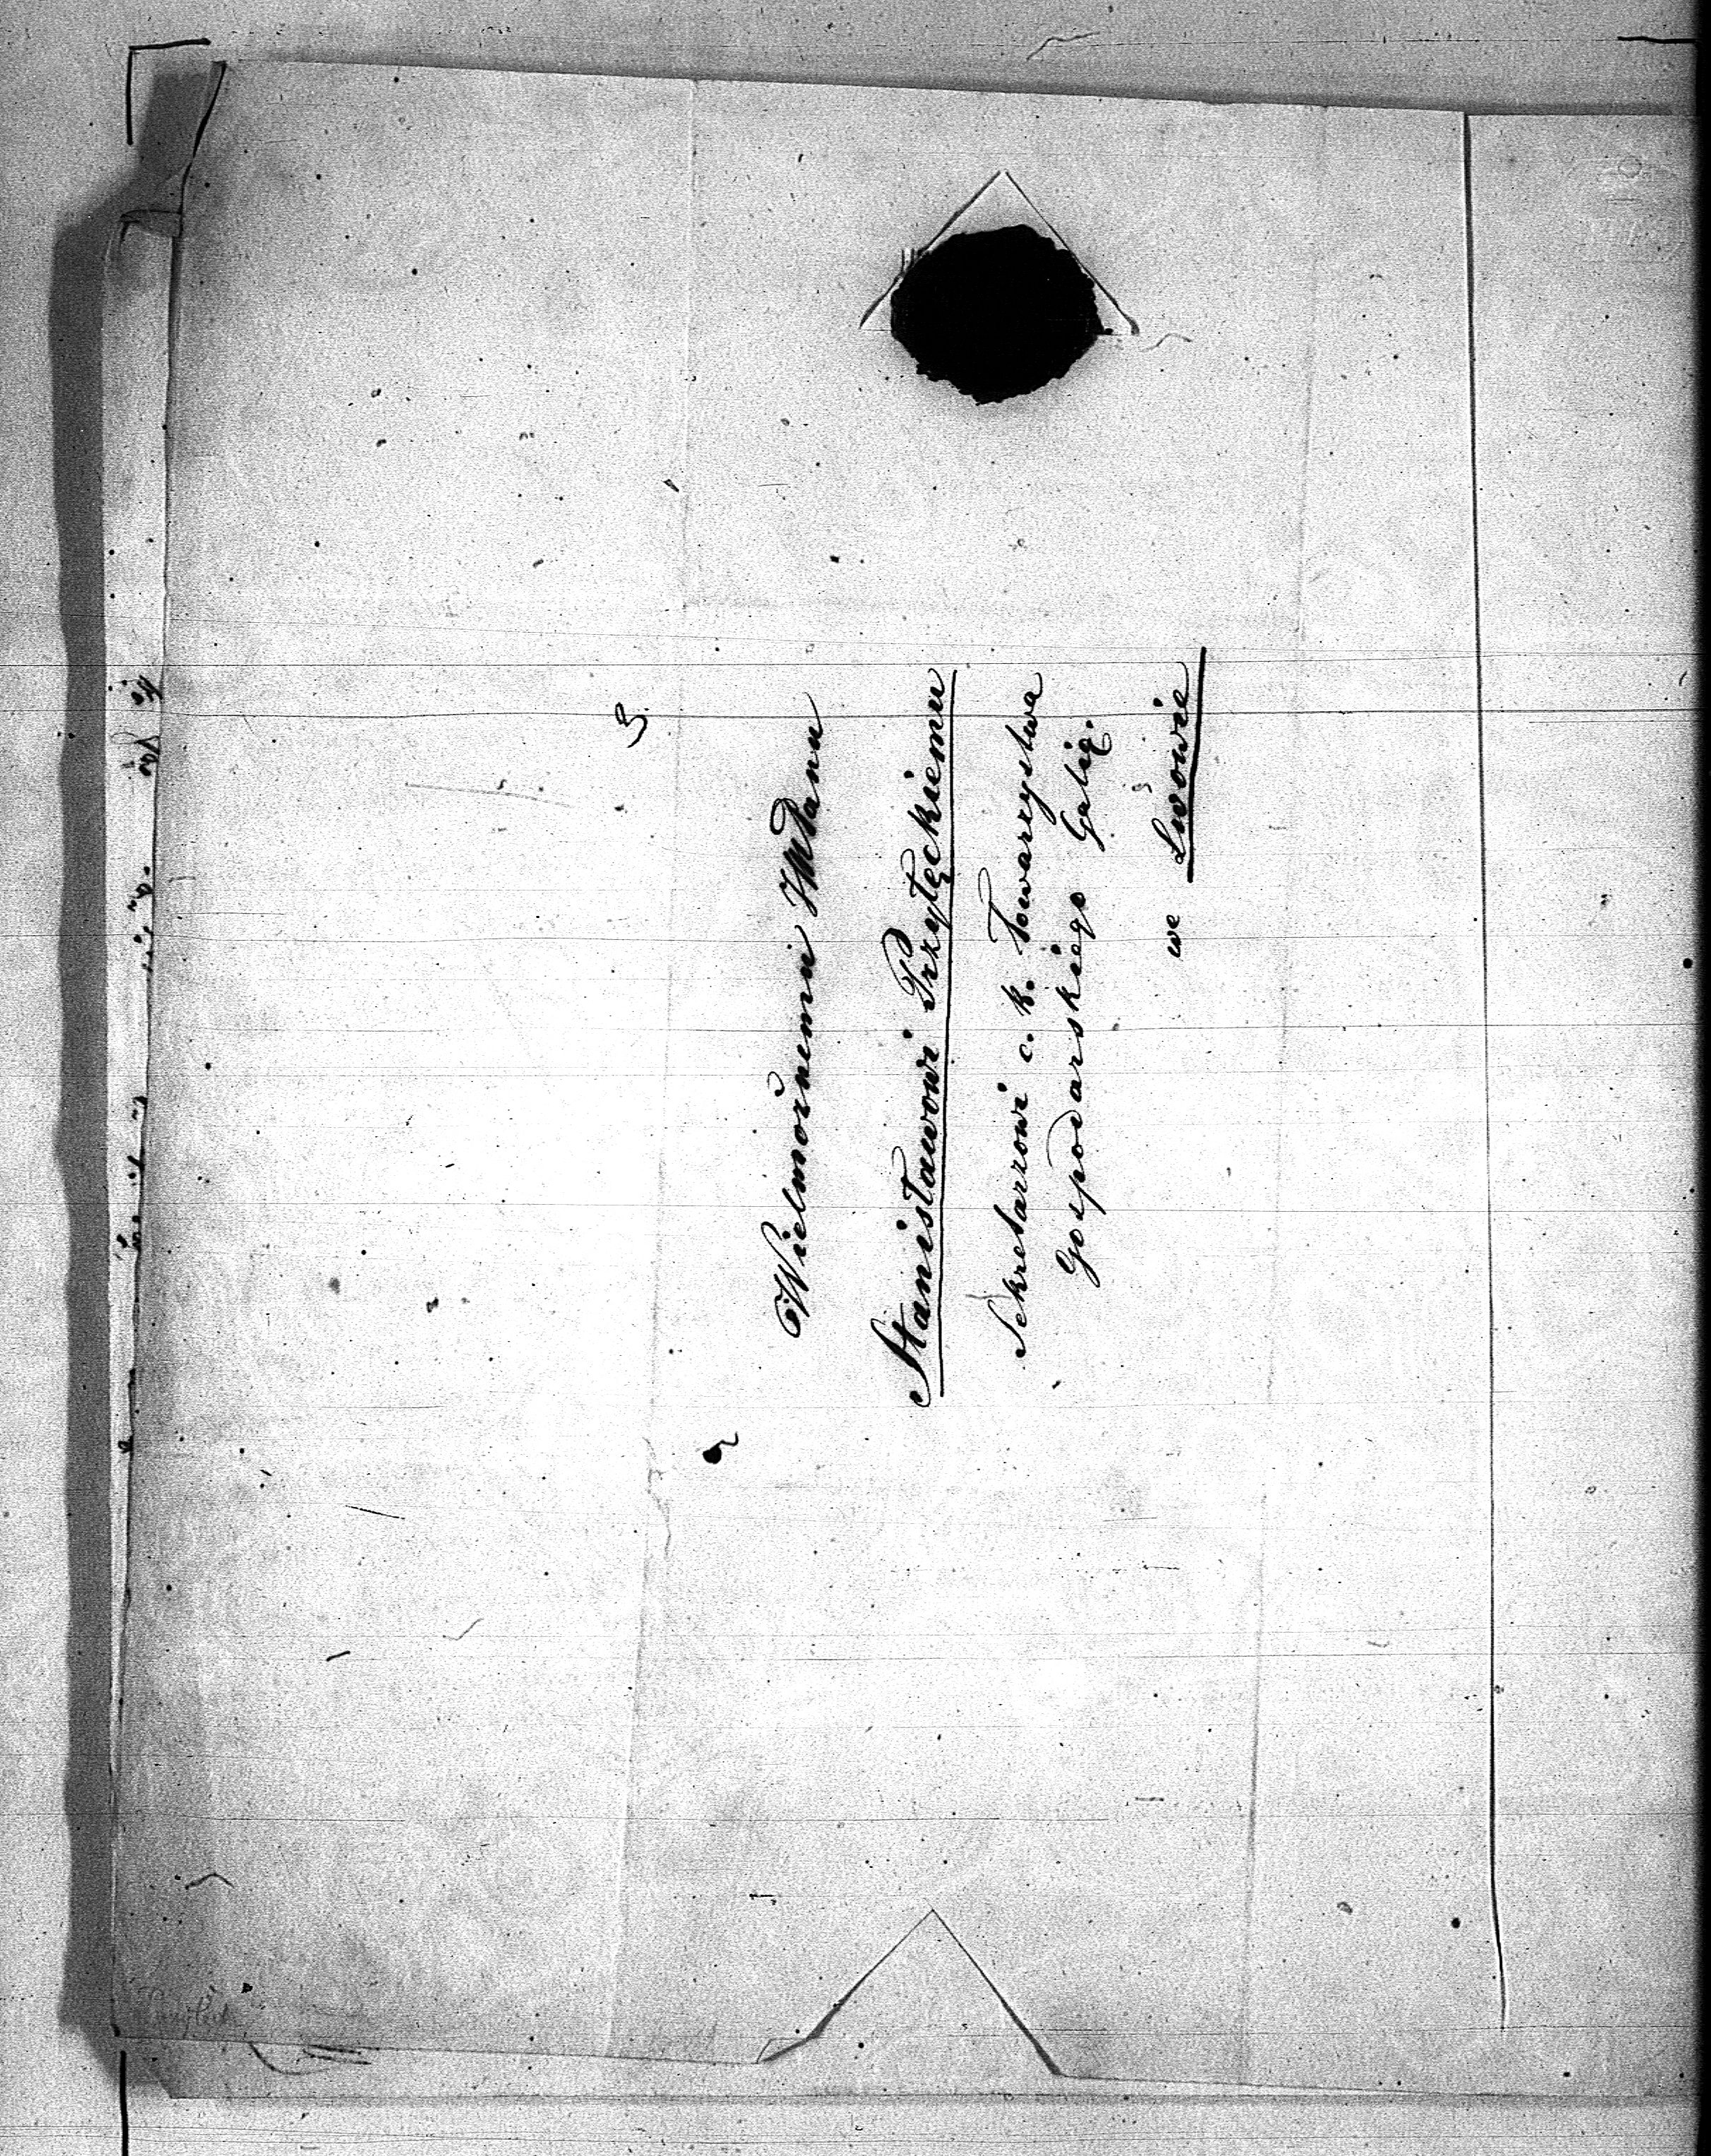 Wielmożnemu JMPanu
Stanisławowi Przyłęckiemu
Sekretarzowi c. k. Towarzystwa
Gospodarskiego Galic.
we Lwowie